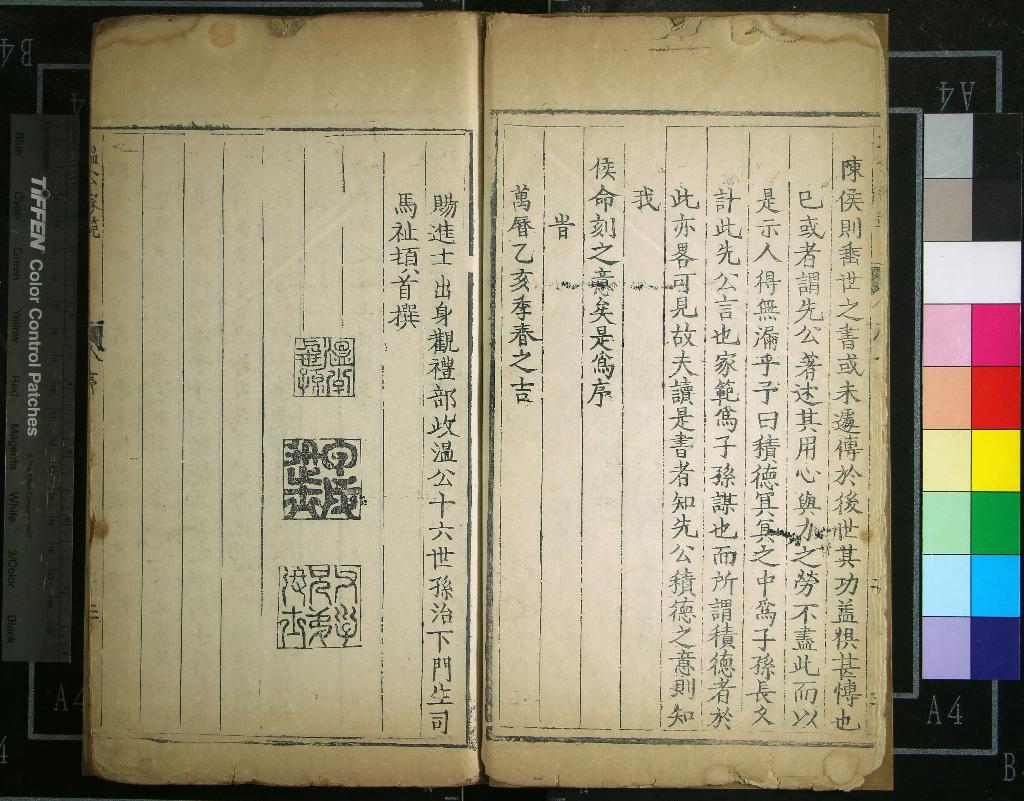 陳侯則垂世之書或未遽傳於後世其功盖猽甚愽也
已或者謂先公著述其用心與力之勞不盡此而以
是示人得無漏乎予曰積德冥冥之中爲子孫長久
計此先公言也家範爲子孫謀也而所謂積德者於
此亦畧可見故夫讀是書者知先公積德之意則知
我
侯命刻之意矣是爲序
旹
萬曆乙亥季春之吉
賜進士出身觀禮部政溫公十六世孫治下門生司
馬祉頓首撰
溫公家範
Blue
Cyan
Green
Yellow
Red
Magenta
White
3/Color
Black
TIFFEN Color Control Patches
A4
A4
A4
B4